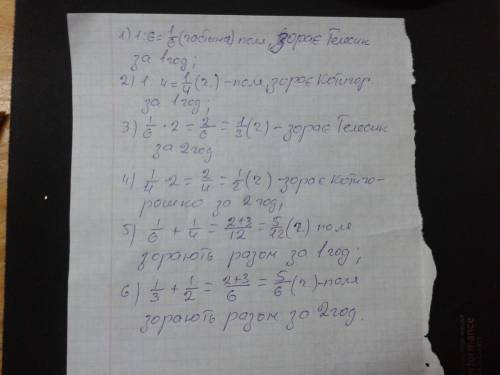 1) 1:6=1/6 (частина) поля, зорає Телесик
за 1 год;
2) 1:4=1/4 (ч.) - поля, зорає Котигор.
за 1 год;
3) 1/6 · 2 = 2/6 = 1/3 (ч.) - зорає Телесик
за 2 год
4) 1/4 · 2 = 2/4 = 1/2 (ч.) - зорає Котиго-
рошко за 2 год;
5) 1/6 + 1/4 = 2+3/12 = 5/12 (ч.) поля
зорають разом за 1 год;
6) 1/3 + 1/2 = 2+3/6 = 5/6 (ч.) - поля
зорають разом за 2 год.